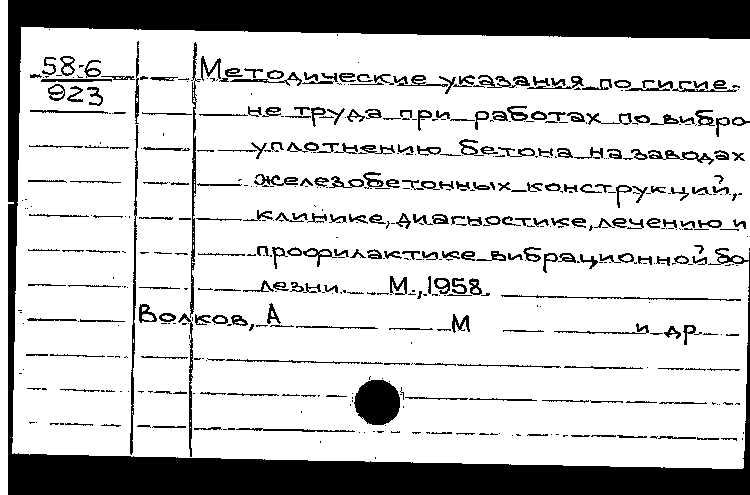 58-6
923
Методические указания по гигие-
не труда при работах по вибро
уплотнению бетона на заводах
железобетонных конструкций,
клинике, диагностике, лечению и
профилактике вибрационной бо
лезни. М., 1958.
Волков, А М и др